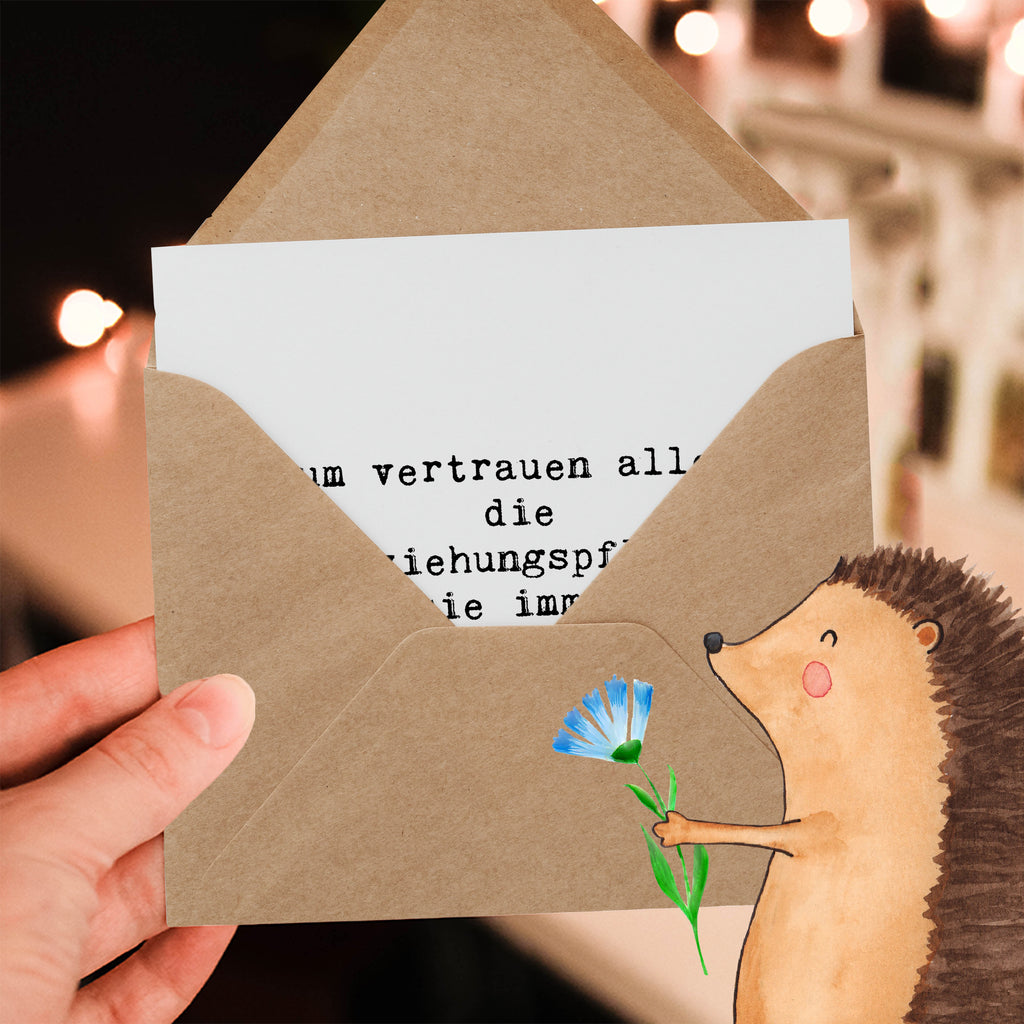 um vertrauen alle
die
ziehungspf
ie imm